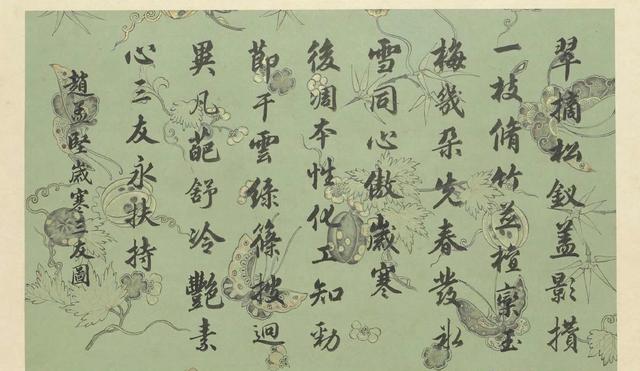 翠摘松釵蓋影攢
一枝脩竹並檀欒玉
梅幾朵先春發氷
雪同心傲歲寒
後凋本性化工知勁
節干雲綠篠披迥
異凡葩舒冷艷素
心三友永扶持
趙孟堅歲寒三友圖